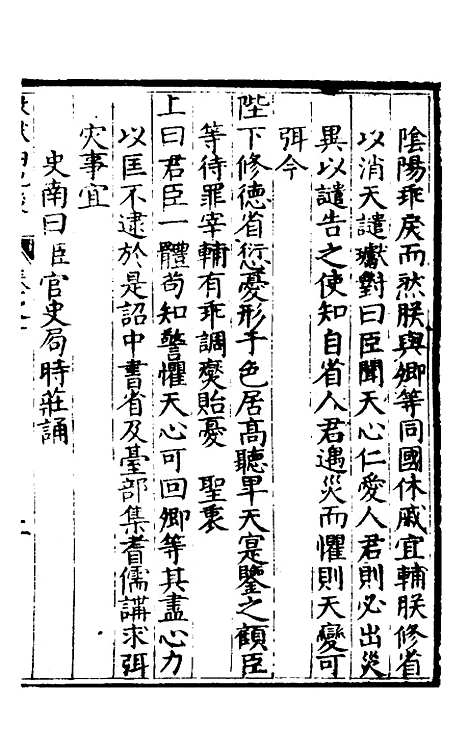 陰陽乖戾而然朕與卿等同國休戚宜輔朕修省
以消天譴瓛對曰臣聞天心仁愛人君則必出災
異以譴告之使知自省人君遇災而懼則天變可
弭今
陛下修德省愆憂形于色居高聽卑天寔鑒之顧臣
等待罪宰輔有乖調燮貽憂　聖衷
上曰君臣一體茍知警懼天心可回卿等其盡心力
以匡不逮於是詔中書省及臺部集耆儒講求弭
灾事宜
史南曰臣官史局時莊誦